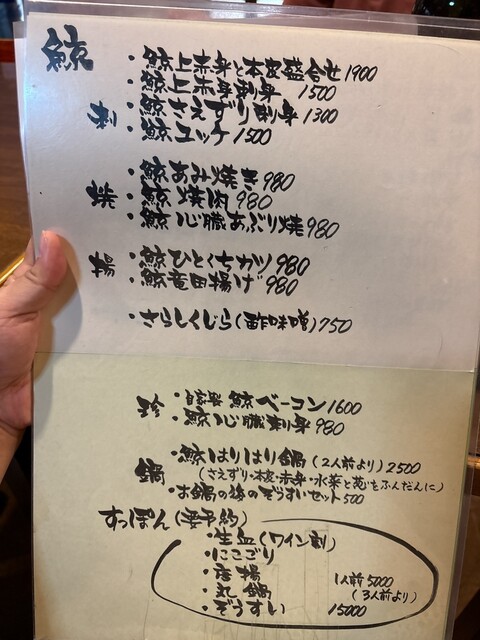 鯨
・鯨上赤身と本皮盛合せ1900
・鯨上赤身刺身 1500
刺・鯨さえずり刺身 1300
・鯨ユッケ 1500
・鯨あみ焼き 980
焼・鯨焼肉 980
・鯨心臓あぶり焼 980
揚・鯨ひとくちカツ 980
・鯨竜田揚げ 980
・さらしくじら(酢味噌) 750
珍・自家製 鯨ベーコン 1600
・鯨心臓刺身 980
鍋・鯨はりはり鍋(2人前より) 2500
(さえずり・本皮・赤身・水菜と葱をふんだんに)
・お鍋の後のぞうすいセット 500
すっぽん(要予約)
・生血(ワイン割)
・にこごり
・唐揚 1人前 5000
・丸鍋 (3人前より)
・ぞうすい 15000